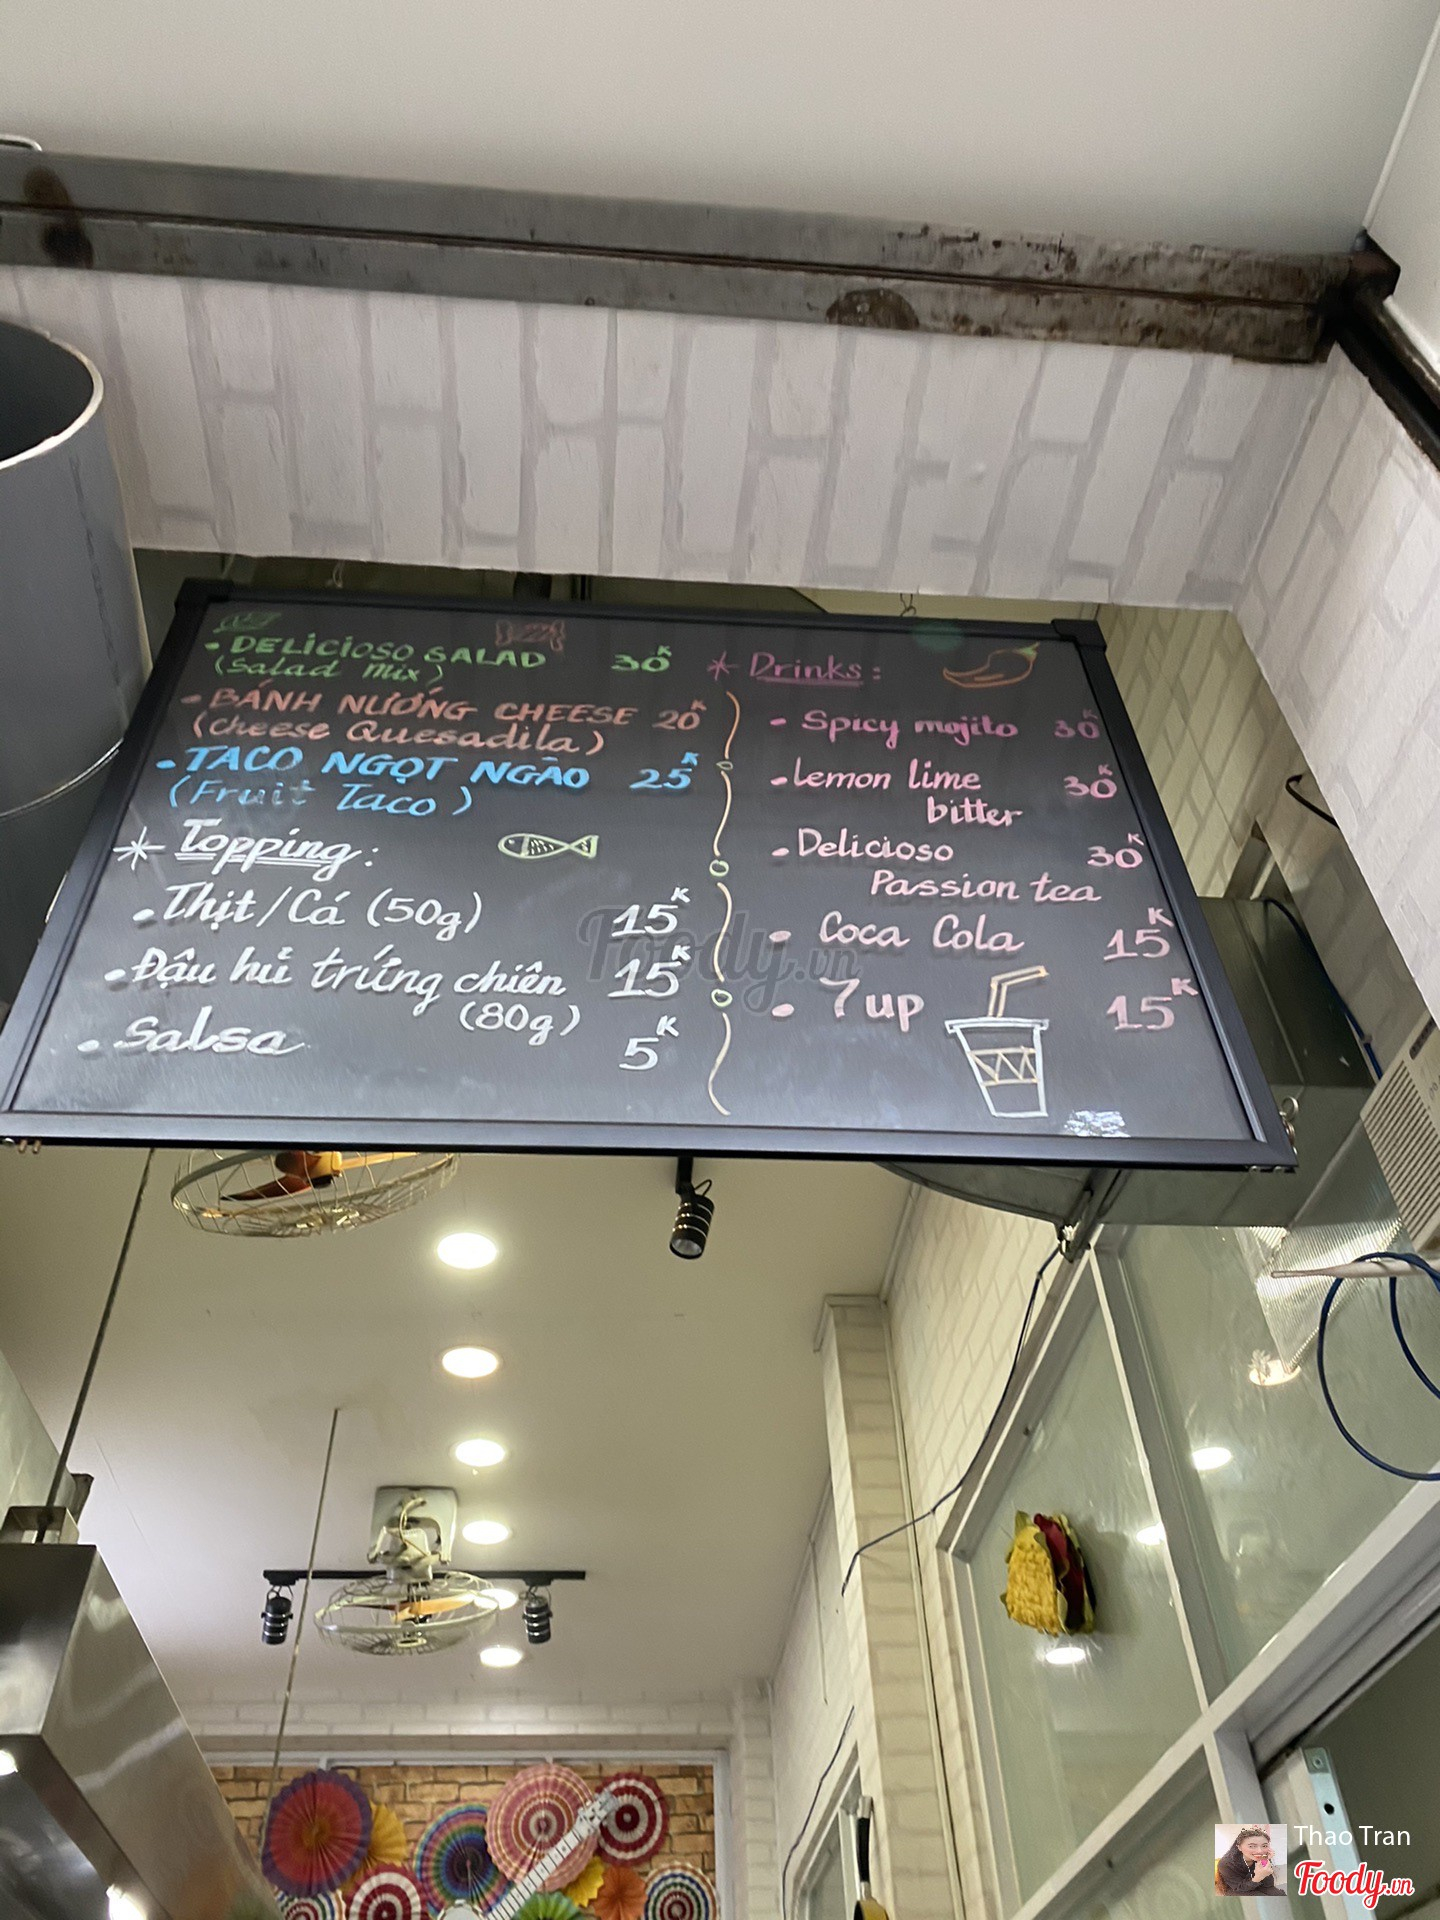 • DELICIOSO SALAD 30K
(Salad Mix)
• BÁNH NƯỚNG CHEESE 20K
(Cheese Quesadila)
• TACO NGỌT NGÀO 25K
(Fruit Taco)
* Topping:
• Thịt/Cá (50g) 15K
• Đậu hủ trứng chiên 15K
(80g)
• Salsa 5K
* Drinks:
• Spicy mojito 30K
• Lemon lime 30K
bitter
• Delicioso 30K
Passion tea
• Coca Cola 15K
• 7up 15K
Foody.vn
Thao Tran
Foody.vn